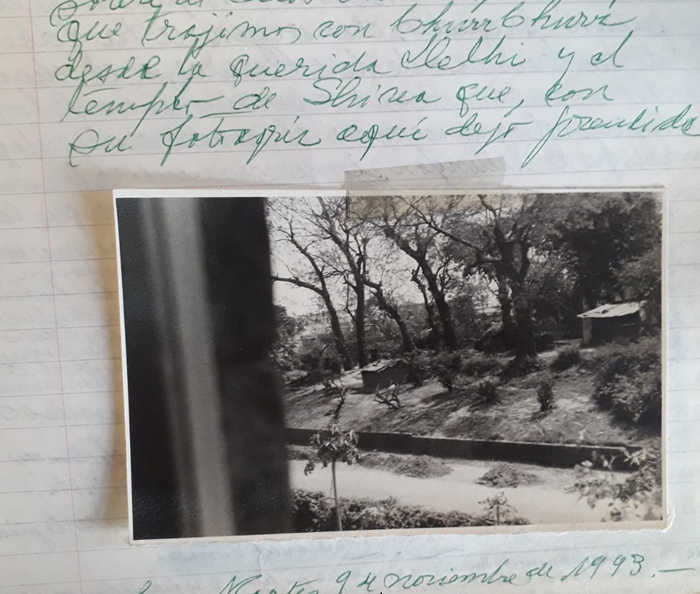 que trajimos con Churchura
desde la querida Delhi y el
templo de Shiva que, con
su fotografía aquí dejo prendida
Martes 9 noviembre de 1993.—